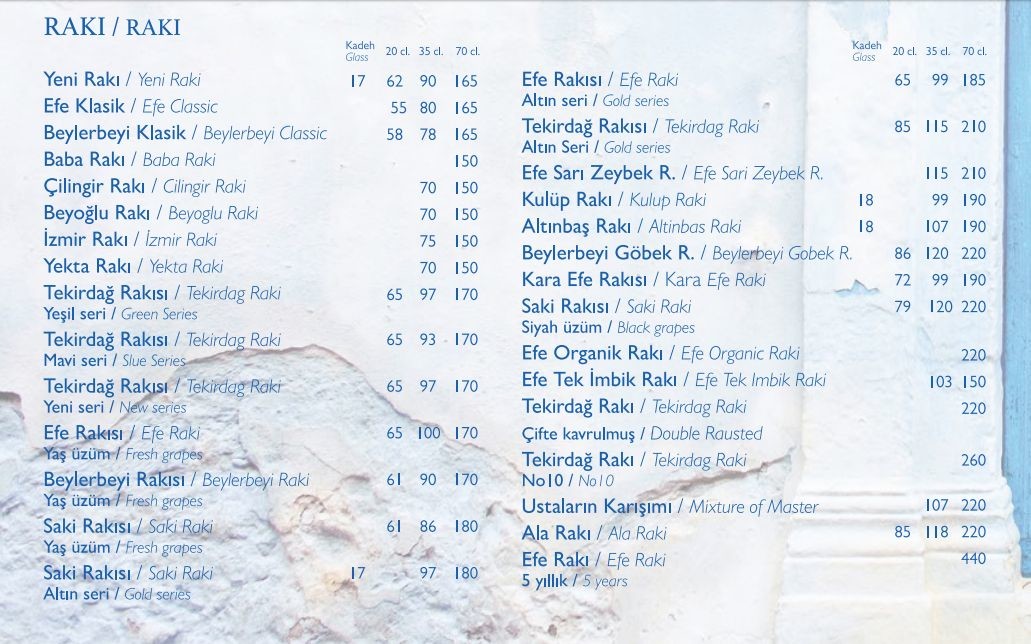 RAKI / RAKI
Kadeh
Glass 20 cl. 35 cl. 70 cl.
Yeni Rakı / Yeni Raki 17 62 90 165
Efe Klasik / Efe Classic 55 80 165
Beylerbeyi Klasik / Beylerbeyi Classic 58 78 165
Baba Rakı / Baba Raki 150
Çilingir Rakı / Cilingir Raki 70 150
Beyoğlu Rakı / Beyoglu Raki 70 150
İzmir Rakı / İzmir Raki 75 150
Yekta Rakı / Yekta Raki 70 150
Tekirdağ Rakısı / Tekirdag Raki 65 97 170
Yeşil seri / Green Series
Tekirdağ Rakısı / Tekirdag Raki 65 93 170
Mavi seri / Slue Series
Tekirdağ Rakısı / Tekirdag Raki 65 97 170
Yeni seri / New series
Efe Rakısı / Efe Raki 65 100 170
Yaş üzüm / Fresh grapes
Beylerbeyi Rakısı / Beylerbeyi Raki 61 90 170
Yaş üzüm / Fresh grapes
Saki Rakısı / Saki Raki 61 86 180
Yaş üzüm / Fresh grapes
Saki Rakısı / Saki Raki 17 97 180
Altın seri / Gold series
Kadeh
Glass 20 cl. 35 cl. 70 cl.
Efe Rakısı / Efe Raki 65 99 185
Altın seri / Gold series
Tekirdağ Rakısı / Tekirdag Raki 85 115 210
Altın Seri / Gold series
Efe Sarı Zeybek R. / Efe Sari Zeybek R. 115 210
Kulüp Rakı / Kulup Raki 18 99 190
Altınbaş Rakı / Altinbas Raki 18 107 190
Beylerbeyi Göbek R. / Beylerbeyi Gobek R. 86 120 220
Kara Efe Rakısı / Kara Efe Raki 72 99 190
Saki Rakısı / Saki Raki 79 120 220
Siyah üzüm / Black grapes
Efe Organik Rakı / Efe Organic Raki 220
Efe Tek İmbik Rakı / Efe Tek Imbik Raki 103 150
Tekirdağ Rakı / Tekirdag Raki 220
Çifte kavrulmuş / Double Rausted
Tekirdağ Rakı / Tekirdag Raki 260
No10 / No10
Ustaların Karışımı / Mixture of Master 107 220
Ala Rakı / Ala Raki 85 118 220
Efe Rakı / Efe Raki 440
5 yıllık / 5 years